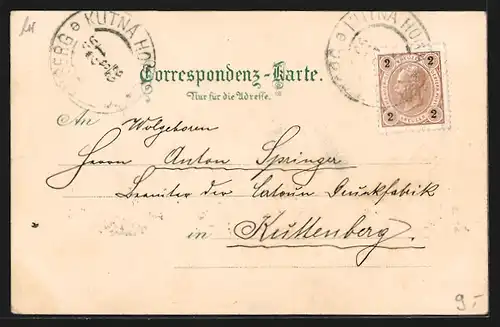 KUTNA HORA
KUTNA HO
Correspondenz-Karte.
Nur für die Adresse.
2 2
2 2
An Wolgeboren
Herrn Anton Springer
Beamter der Catoun Druckfabrik
in Kuttenberg.
9.-